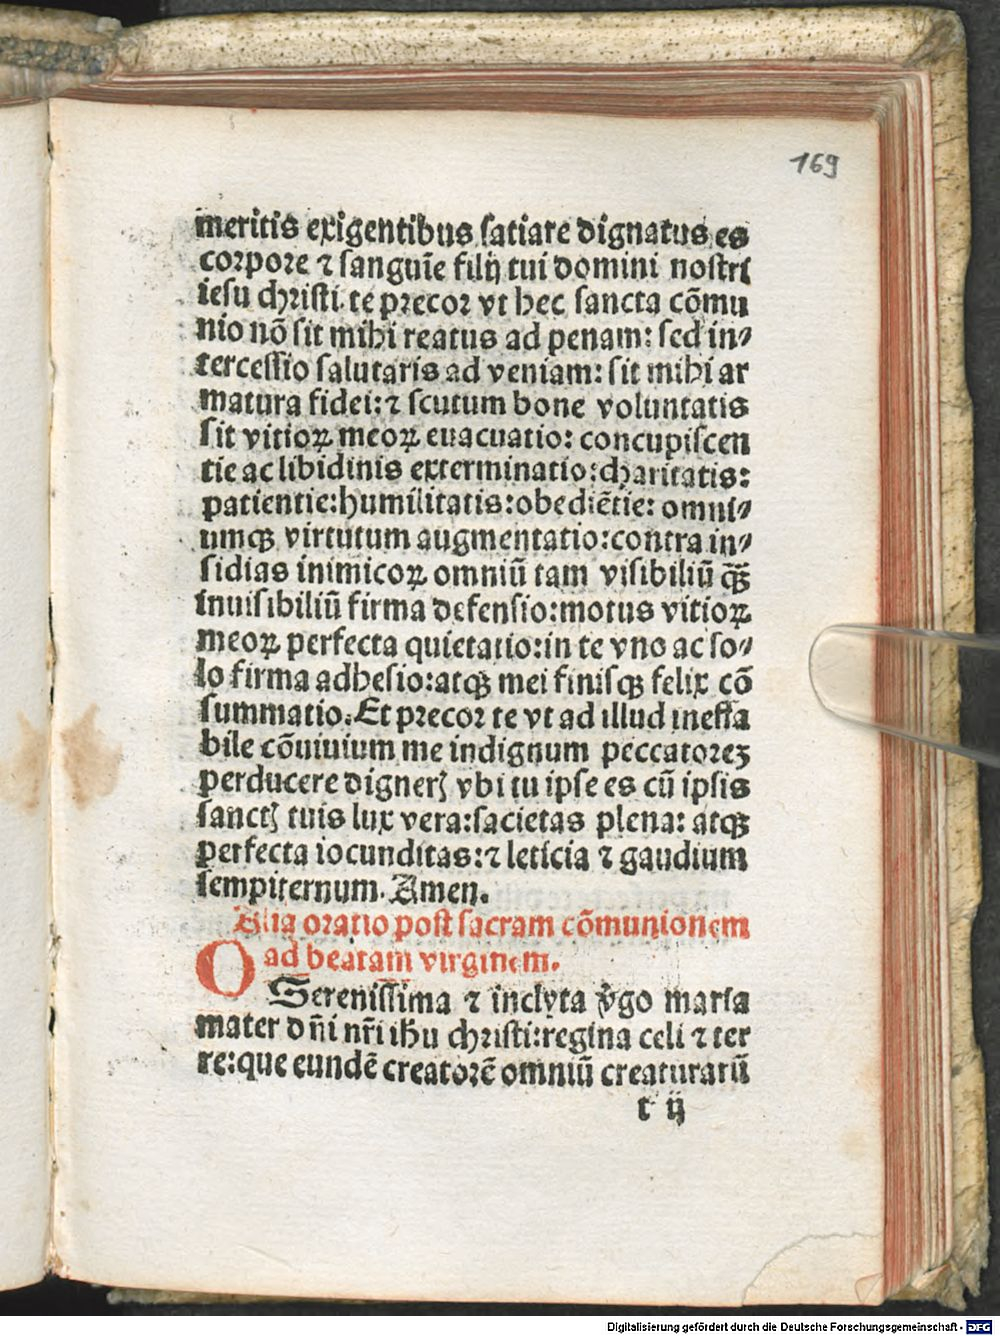 169
meritis exigentibus satiare dignatus es
corpore ⁊ sanguīe filij tui domini nostri
iesu christi. te precor vt hec sancta cōmu
nio nō sit mihi reatus ad penam: sed in⸗
tercessio salutaris ad veniam: sit mihi ar
matura fidei: ⁊ scutum bone voluntatis
sit vitioꝝ meoꝝ euacuatio: concupiscen
tie ac libidinis exterminatio: charitatis:
patientie: humilitatis: obediētie: omni⸗
umqꝫ virtutum augmentatio: contra in⸗
sidias inimicoꝝ omniū tam visibiliū q̄ꝫ
inuisibiliū firma defensio: motus vitioꝝ
meoꝝ perfecta quietatio: in te vno ac so⸗
lo firma adhesio: atqꝫ mei finisqꝫ felix cō
summatio. Et precor te vt ad illud ineffa
bile cōuiuium me indignum peccatoreꝫ
perducere digneris vbi tu ipse es cū ipsis
sanctis tuis lux vera: sacietas plena: atqꝫ
perfecta iocunditas: ⁊ leticia ⁊ gaudium
sempiternum. Amen.
Alia oratio post sacram cōmunionem
ad beatam virginem.
O Serenissima ⁊ inclyta v̄go maria
mater dn̄i nr̄i ihu christi: regina celi ⁊ ter
re: que eundē creatorē omniū creaturarū
t ij
Digitalisierung gefördert durch die Deutsche Forschungsgemeinschaft - DFG